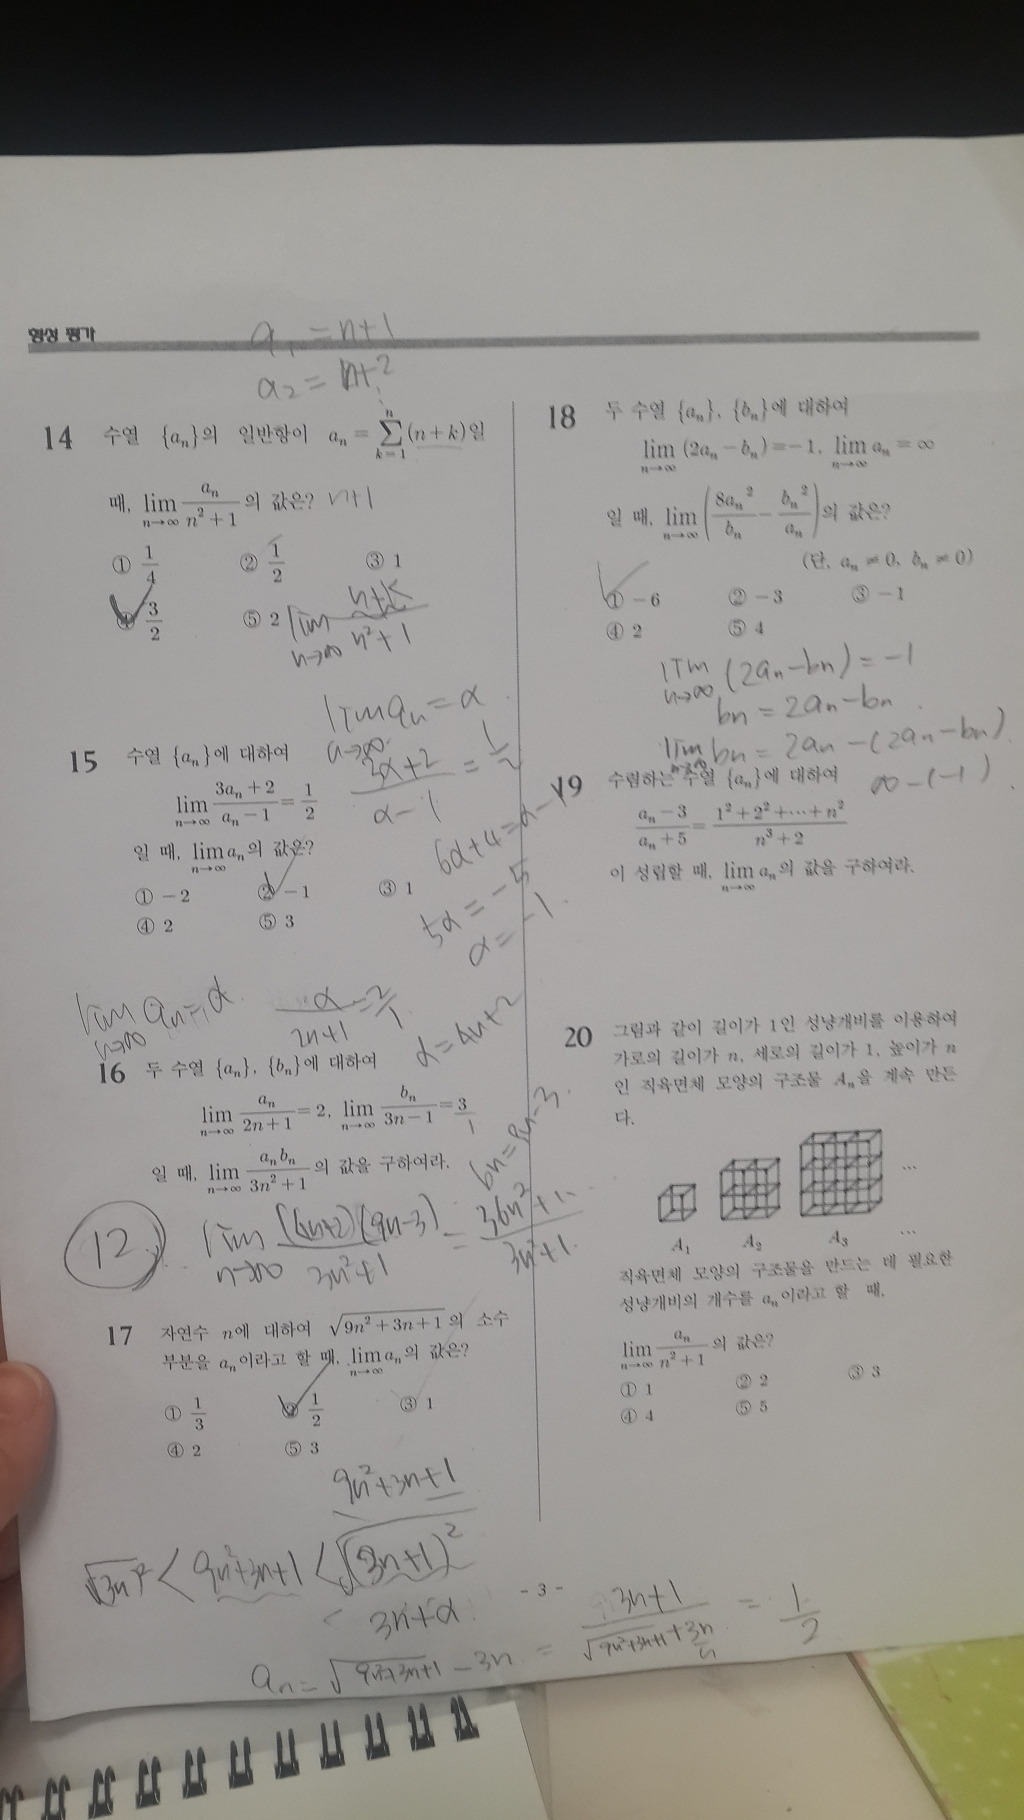 형성 평가
a₁ = n+1
a₂ = n+2
14 수열 {aₙ}의 일반항이 aₙ = ∑_{k=1}^{n} (n+k)일
때, lim_{n→∞} aₙ/(n²+1) 의 값은? n+1
① 1/4 ② 1/2 ③ 1
④ 3/2 ⑤ 2
lim_{n→∞} (n+k)/(n²+1)
lim_{n→∞} aₙ = α
15 수열 {aₙ}에 대하여
lim_{n→∞} (3aₙ+2)/(aₙ−1) = 1/2
일 때, lim_{n→∞} aₙ의 값은?
① −2 ② −1 ③ 1
④ 2 ⑤ 3
(3α+2)/(α−1) = 1/2
6α+4 = α−1
5α = −5
α = −1
lim_{n→∞} aₙ = α
α/(2n+1) = 2/1
α = 4n+2
16 두 수열 {aₙ}, {bₙ}에 대하여
lim_{n→∞} aₙ/(2n+1) = 2, lim_{n→∞} bₙ/(3n−1) = 3
일 때, lim_{n→∞} aₙbₙ/(3n²+1) 의 값을 구하여라.
bn = 9n−3
12
lim_{n→∞} (4n+2)(9n−3)/(3n²+1) = (36n²+1··)/(3n²+1)
17 자연수 n에 대하여 √(9n²+3n+1) 의 소수
부분을 aₙ이라고 할 때, lim_{n→∞} aₙ의 값은?
① 1/3 ② 1/2 ③ 1
④ 2 ⑤ 3
9n²+3n+1
√(3n)² < 9n²+3n+1 < √(3n+1)²
3n+α
aₙ = √(9n²+3n+1) − 3n = (3n+1)/(√(9n²+3n+1)+3n) = 1/2
18 두 수열 {aₙ}, {bₙ}에 대하여
lim_{n→∞} (2aₙ−bₙ) = −1, lim_{n→∞} aₙ = ∞
일 때, lim_{n→∞} (8aₙ²/bₙ − bₙ²/aₙ)의 값은?
(단, aₙ ≠ 0, bₙ ≠ 0)
① −6 ② −3 ③ −1
④ 2 ⑤ 4
lim_{n→∞} (2aₙ−bn) = −1
bn = 2aₙ−bn
lim_{n→∞} bn = 2aₙ−(2aₙ−bn)
∞−(−1)
19 수렴하는 수열 {aₙ}에 대하여
(aₙ−3)/(aₙ+5) = (1²+2²+⋯+n²)/(n³+2)
이 성립할 때, lim_{n→∞} aₙ의 값을 구하여라.
20 그림과 같이 길이가 1인 성냥개비를 이용하여
가로의 길이가 n, 세로의 길이가 1, 높이가 n
인 직육면체 모양의 구조물 Aₙ을 계속 만든
다.
⋯
A₁ A₂ A₃ ⋯
직육면체 모양의 구조물을 만드는 데 필요한
성냥개비의 개수를 aₙ이라고 할 때,
lim_{n→∞} aₙ/(n²+1) 의 값은?
① 1 ② 2 ③ 3
④ 4 ⑤ 5
- 3 -